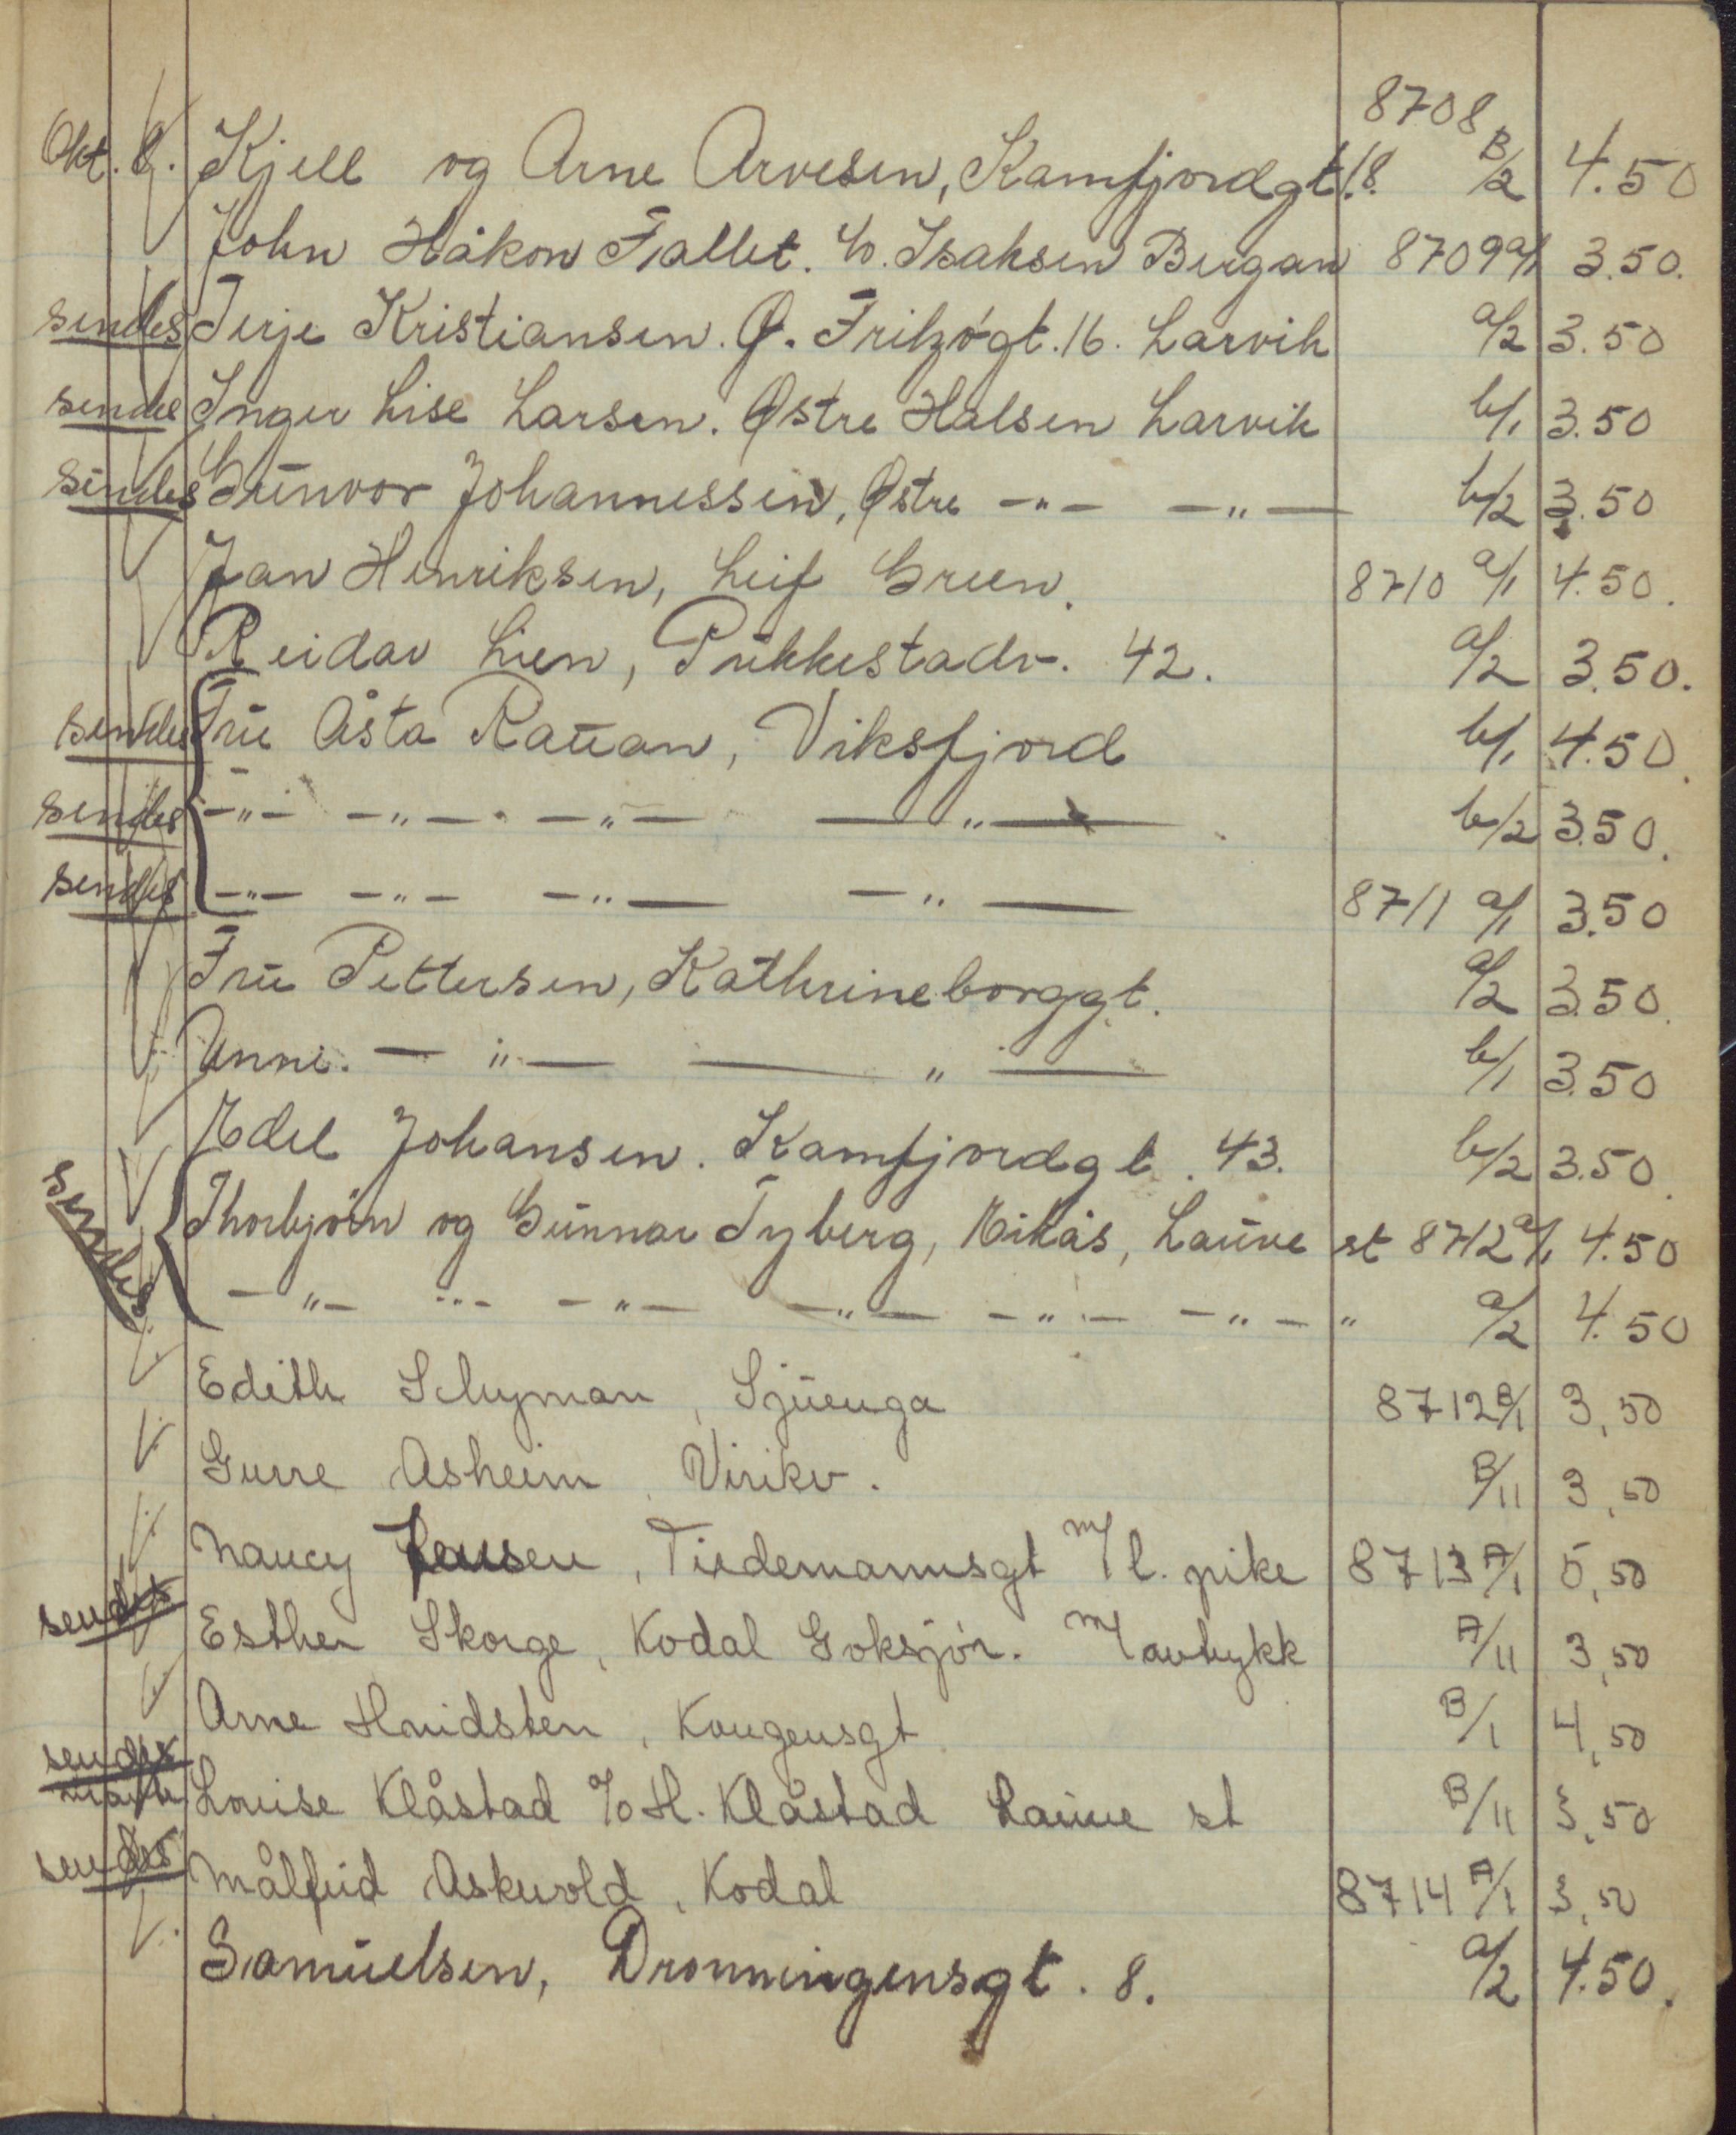 8708
Okt. 8. Kjell og Arne Arvesen, Kamfjordgt. 18. B/2 4.50
John Håkon Fallet. c/o. Isaksen Bergan 8709 a/1 3.50.
sendes Terje Kristiansen. Ø. Fritzøgt. 16. Larvik a/2 3.50
sendes Inger Lise Larsen. Østre Halsen Larvik b/1 3.50
sendes Gunvor Johannessen, Østre -"- -"- b/2 3.50
Jan Henriksen, Leif Green. 8710 a/1 4.50.
Reidar Lien, Pukkestadv. 42. a/2 3.50.
sendes Fru Åsta Rauan, Viksfjord b/1 4.50.
sendes -"- -"- -"- -"- b/2 3.50.
sendes -"- -"- -"- -"- 8711 a/1 3.50
Fru Pettersen, Kathrineborggt. a/2 3.50.
Unni. -"- -"- b/1 3.50
Edel Johansen. Kamfjordgt. 43. b/2 3.50.
sendes Thorbjörn og Gunnar Tyberg, Eikås, Lauve st 8712 a/1 4.50
-"- -"- -"- -"- -"- -"- " a/2 4.50
Edith Schyman, Sjuenga 8712 B/1 3,50
Gurre Asheim, Virikv. B/11 3,50
Nancy Jensen, Tiedemannsgt m/ l. pike 8713 A/1 5,50
sendes Esther Skorge, Kodal Goksjør. m/ avtrykk A/11 3,50
Arne Hvidsten, Kongensgt B/1 4,50
sendes
Louise Klåstad c/o H. Klåstad Lauve st B/11 3,50
sendes Målfrid Askevold, Kodal 8714 A/1 3,50
Samuelsen, Dronningensgt. 8. a/2 4.50.